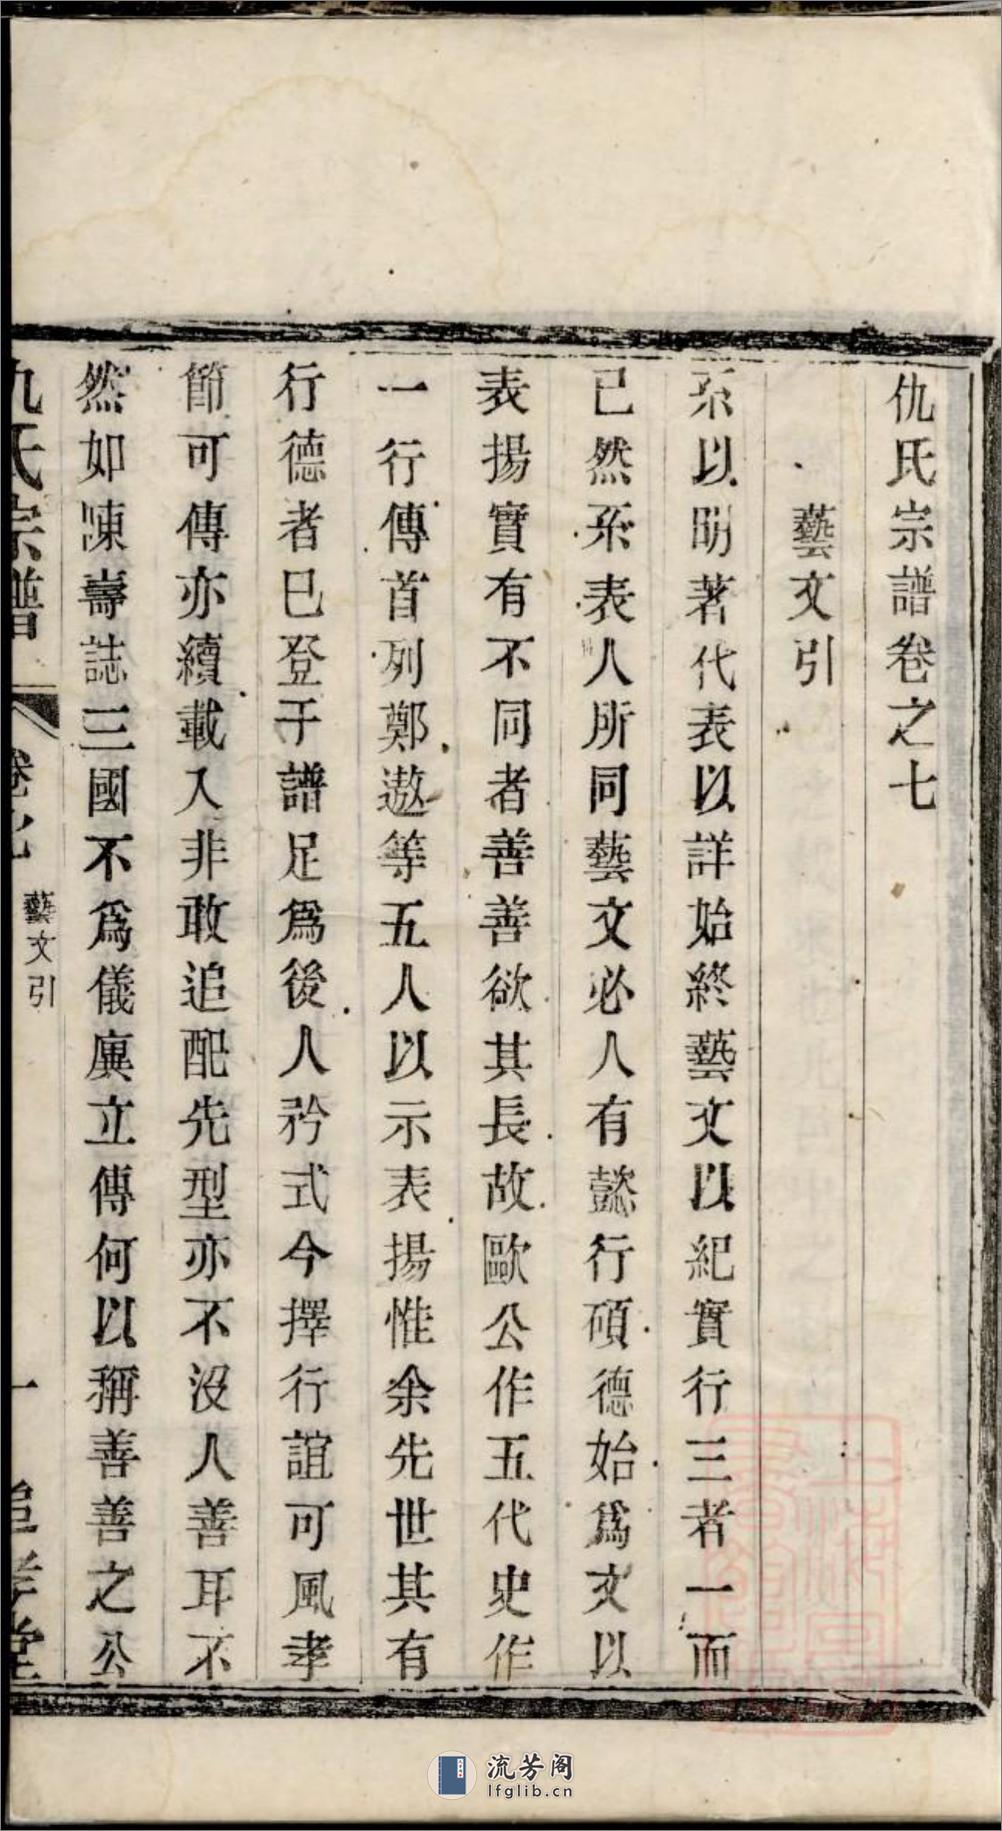 仇氏宗譜卷之七
藝文引
系以明著代表以詳始終藝文以紀實行三者一而
已然系表人所同藝文必人有懿行碩德始爲文以
表揚實有不同者善善欲其長故歐公作五代史作
一行傳首列鄭遨等五人以示表揚惟余先世其有
行德者已登于譜足爲後人矜式今擇行誼可風孝
節可傳亦續載入非敢追配先型亦不没人善耳不
然如陳壽誌三國不爲儀廙立傳何以稱善善之公
仇氏宗譜
卷七
藝文引
一
追孝堂
流芳阁
lfglib.cn